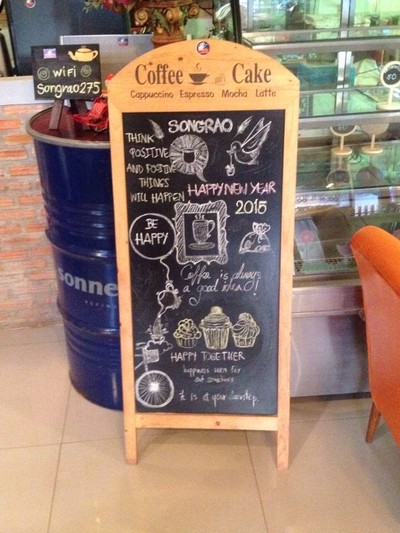 wifi
Songrao275
Coffee Cake
Cappuccino Espresso Mocha Latte
SONGRAO
THINK
POSITIVE
AND POSITIVE
THINGS
WILL HAPPEN
HAPPY NEW YEAR
2015
BE
HAPPY
Coffee is always
a good idea!
HAPPY TOGETHER
happiness
out
It is at your doorstep.
sonne
50